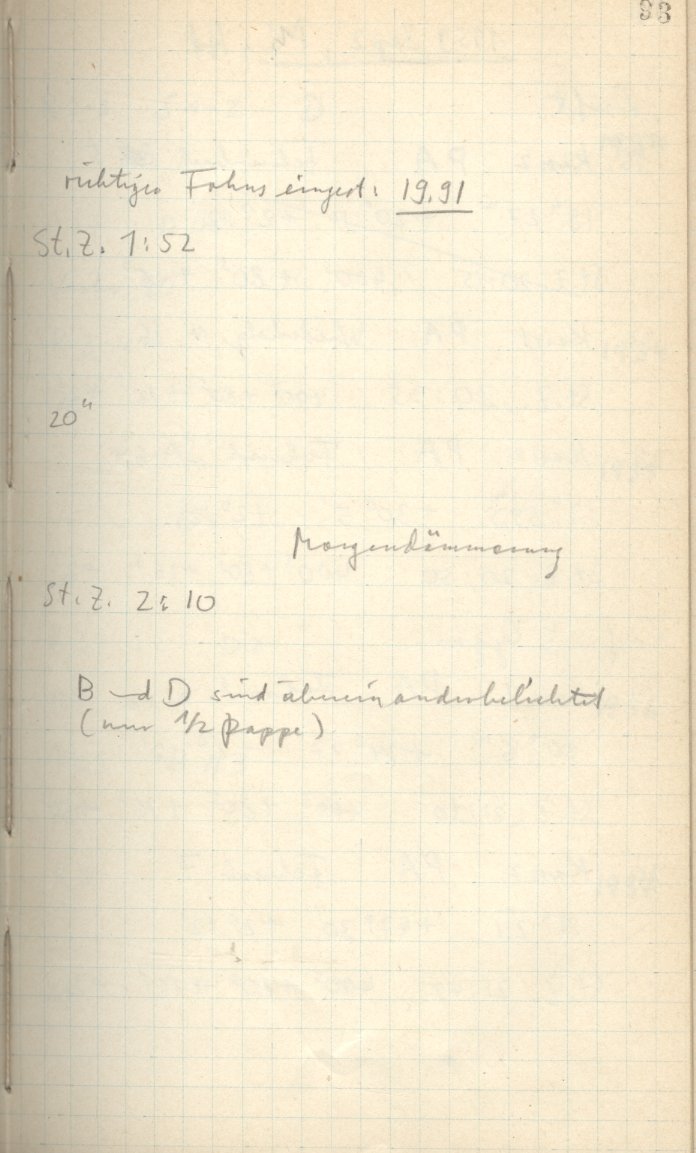 88
richtiger Fokus eingest: 19.91
St. Z. 1:52
20"
Morgendämmerung
St. Z. 2:10
B und D sind übereinanderbelichtet
(nur 1/2 Pappe)